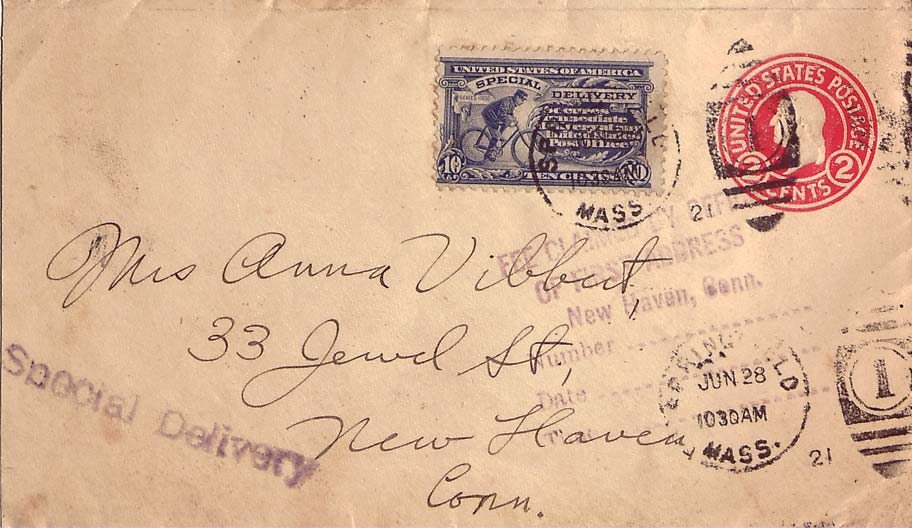 UNITED STATES OF AMERICA
SPECIAL DELIVERY
Secures
immediate
Delivery at any
United States
Post Office
10 TEN CENTS 10
UNITED STATES POSTAGE
2 CENTS 2
MASS
21
FEE CLAIMED BY OFFICE
OF FIRST ADDRESS
New Haven, Conn.
Number
Date
Mrs Anna Vibbert,
33 Jewel St,
New Haven
Conn.
Special Delivery
SPRINGFIELD
JUN 28
1030AM
MASS.
21
1